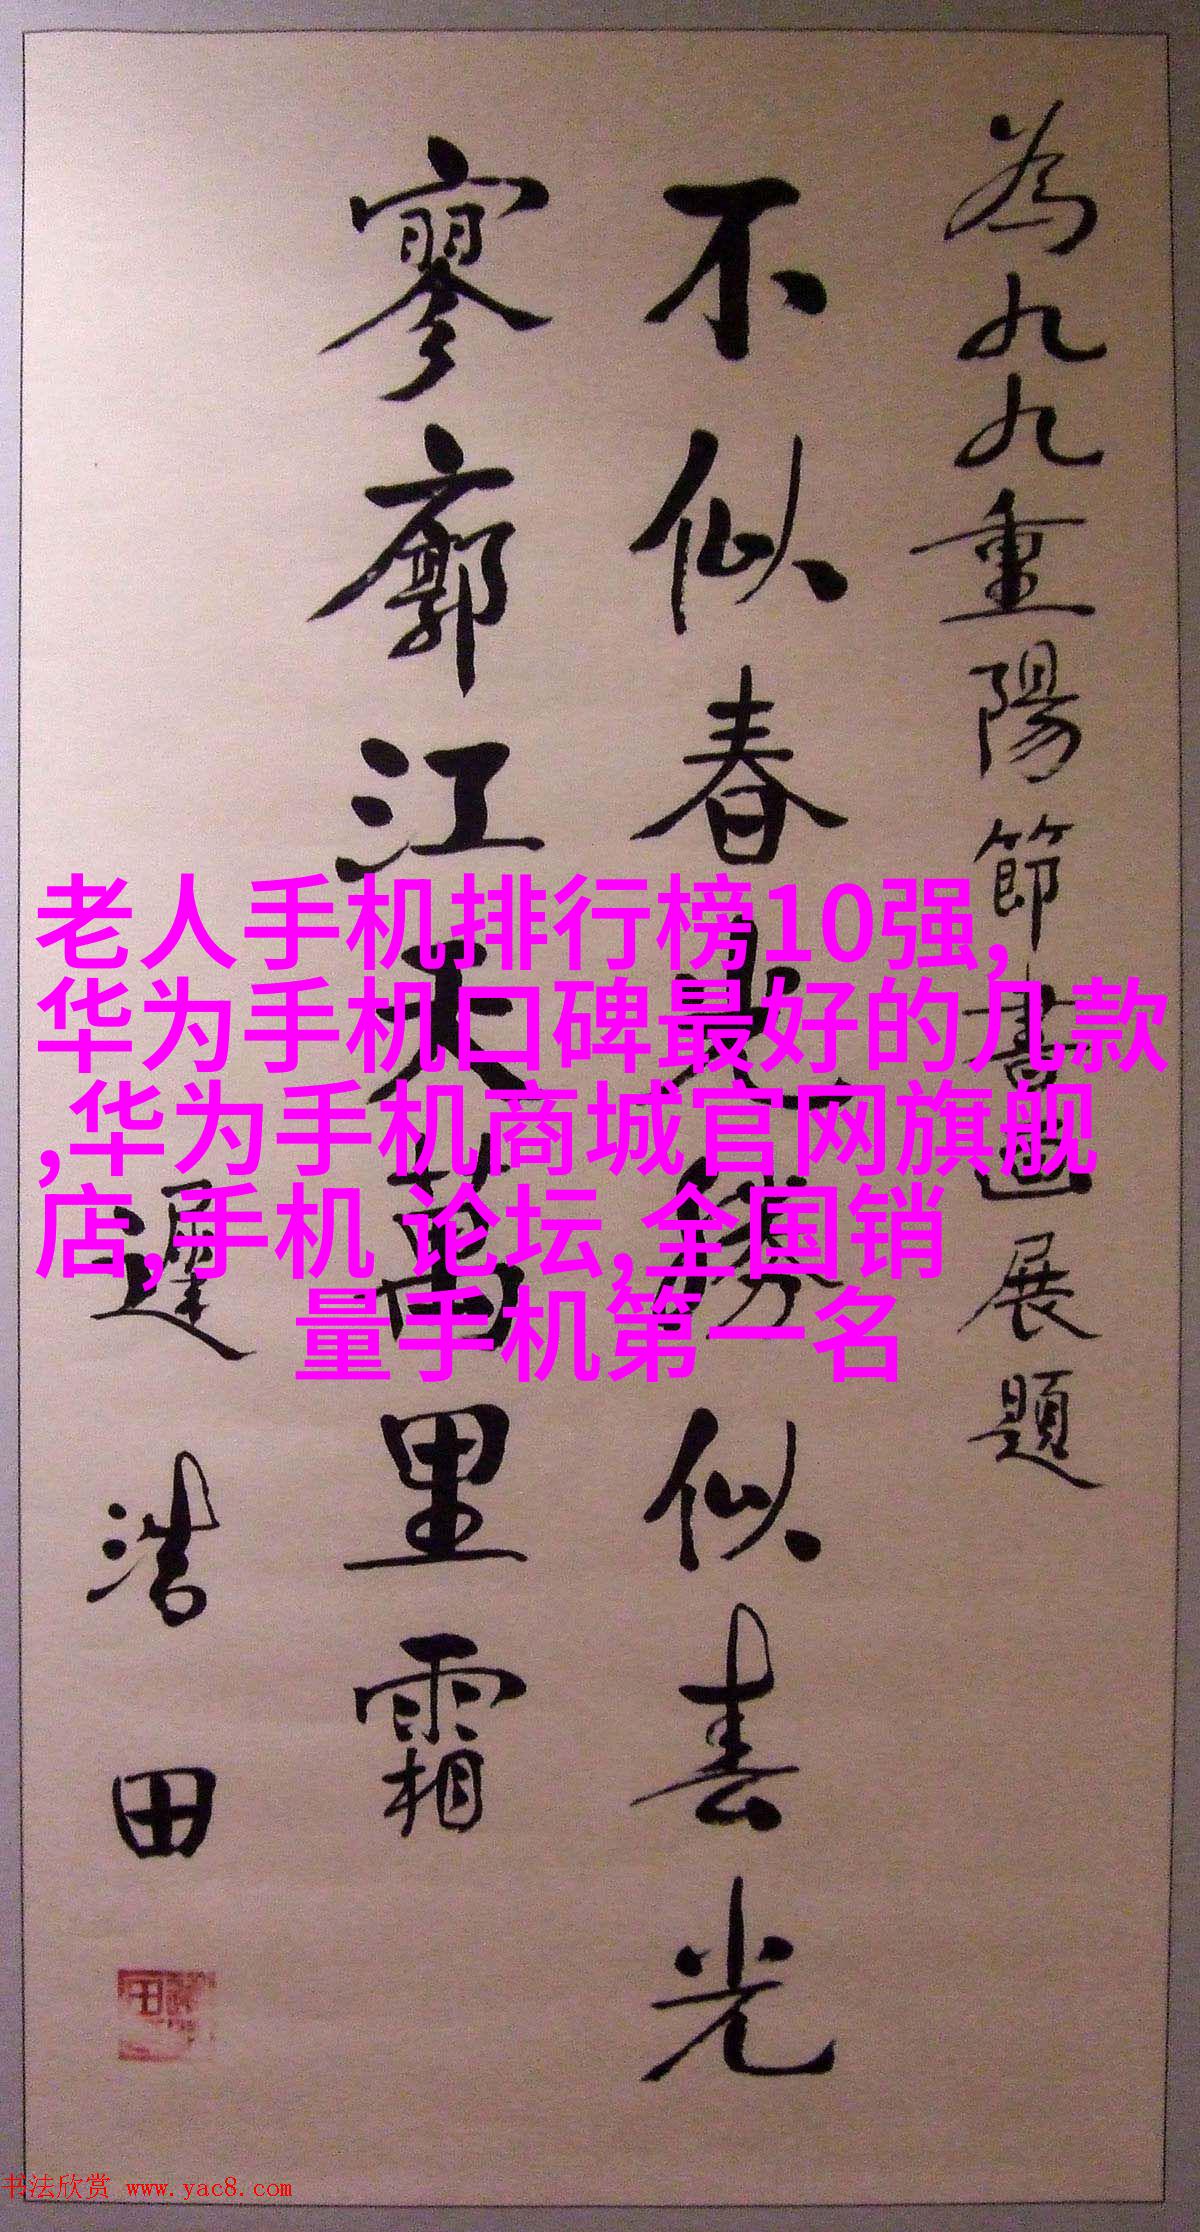 為九九重陽節書畫展題
不似春光勝似春光
寥廓江天萬里霜
遲浩田
老人手机排行榜10强,
华为手机口碑最好的几款
,华为手机商城官网旗舰
店,手机 论坛,全国销
量手机第一名
书法欣赏 www.yac8.com